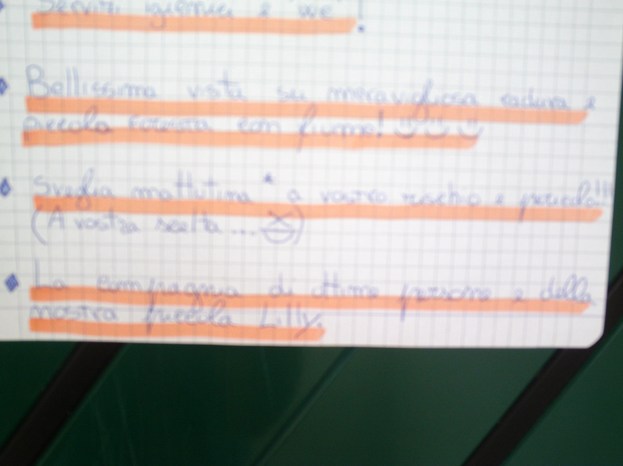 Servizi igienici e we!
Bellissima vista su meravigliosa radura e
piccola foresta con fiume!
Sveglia mattutina * a vostro rischio e pericolo!!!
(A vostra scelta ...)
La compagnia di ottime persone e della
nostra piccola Lilly.